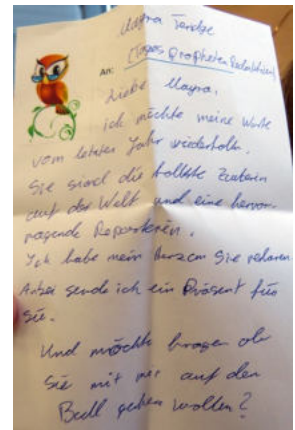 Mayra
An: [Tages Propheten Redaktion]
Liebe Mayra,
ich möchte meine Worte
vom letzten Jahr wiederholen.
Sie sind die tollste Zauberin
auf der Welt und eine hervor-
ragende Reporterin.
Ich habe mein Herz an Sie verloren
Anbei sende ich ein Präsent für
Sie.
Und möchte fragen ob
Sie mit mir auf den
Ball gehen wollen?